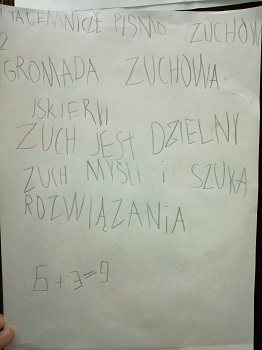 TAJEMNICZE PISMO ZUCHÓW
2
GROMADA ZUCHOWA
ISKIERKI
ZUCH JEST DZIELNY
ZUCH MYŚLI i SZUKA
ROZWIĄZANIA
6+3=9